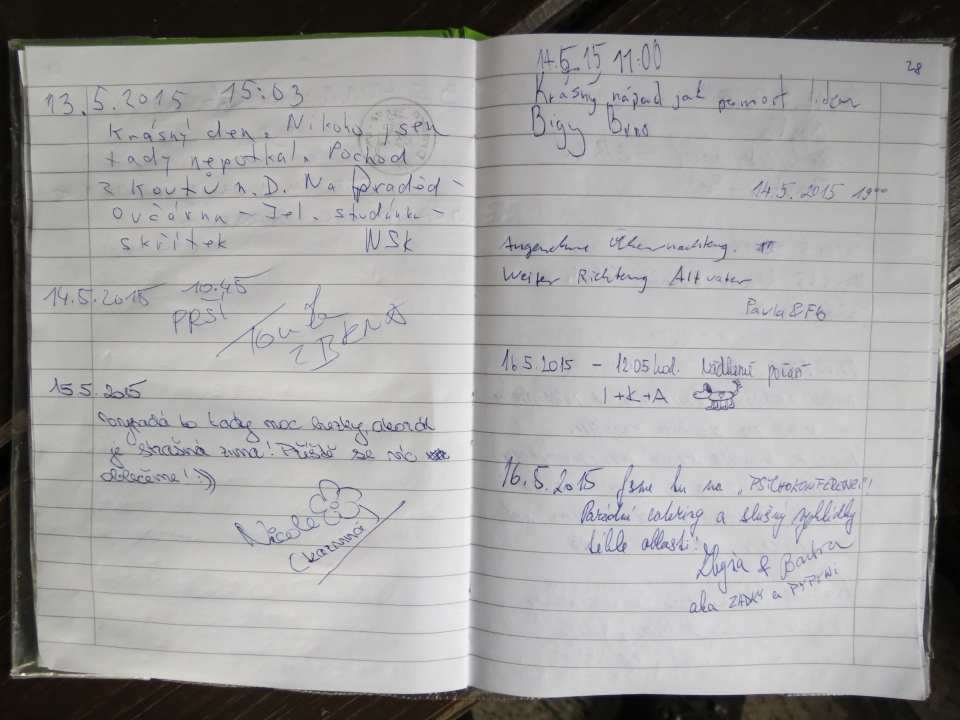 13.5.2015 15:03
Krásný den. Nikoho jsem
tady nepotkal. Pochod
z Koutů n. D. Na Praděd -
Ovčárna - Jel. studánka -
skřítek NSK
14.5.2015 10:45
PRŠÍ
z BRNA
15.5.2015
vypadá to tady moc hezky, akorát
je strašná zima! Příště se víc
oblečeme! :))
Nicole
14.5.15 11:00
28
Krásný nápad jak pomoct lidem
Bigy Brno
14.5.2015 19⁰⁰
Angenehme Übernachtung.
Weiter Richtung Altvater
Pavla & Flo
16.5.2015 - 12:05 hod. Nádherné počasí.
I+K+A
16.5.2015 Jsme tu na „PSYCHOKONFERENCI"!
Parádní catering a slušný vyhlídky
téhle oblasti!
& Barbra
aka ZADKY a PYPYNI